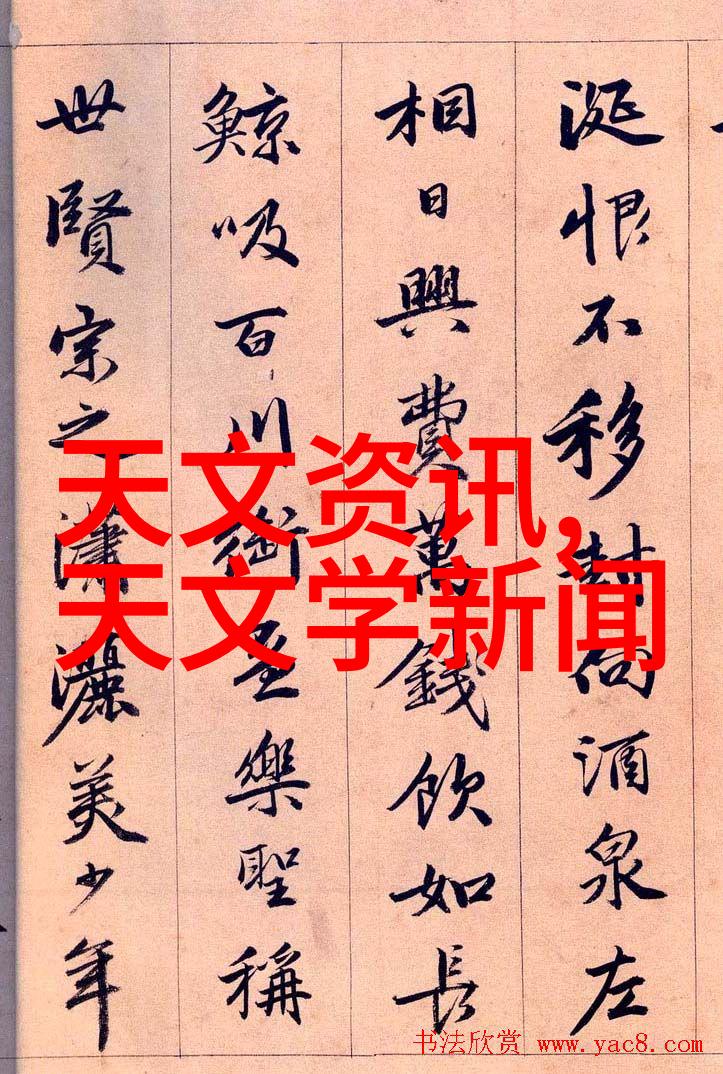 涎恨不移封向酒泉左
相日興費萬錢飲如長
鯨吸百川銜盃樂聖稱
世賢宗之瀟灑美少年
天文资讯,
天文学新闻
书法欣赏 www.yac8.com